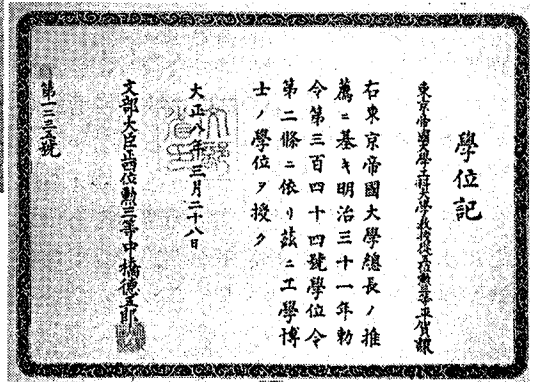 學位記
東京帝國大學工科大學教授從五位勲三等平賀讓
右東京帝國大學總長ノ推
薦ニ基キ明治三十一年勅
令第三百四十四號學位令
第二條ニ依リ玆ニ工學博
士ノ學位ヲ授ク
大正八年三月二十八日
文部省印
文部大臣正四位勲三等中橋德五郎
第一二三五號